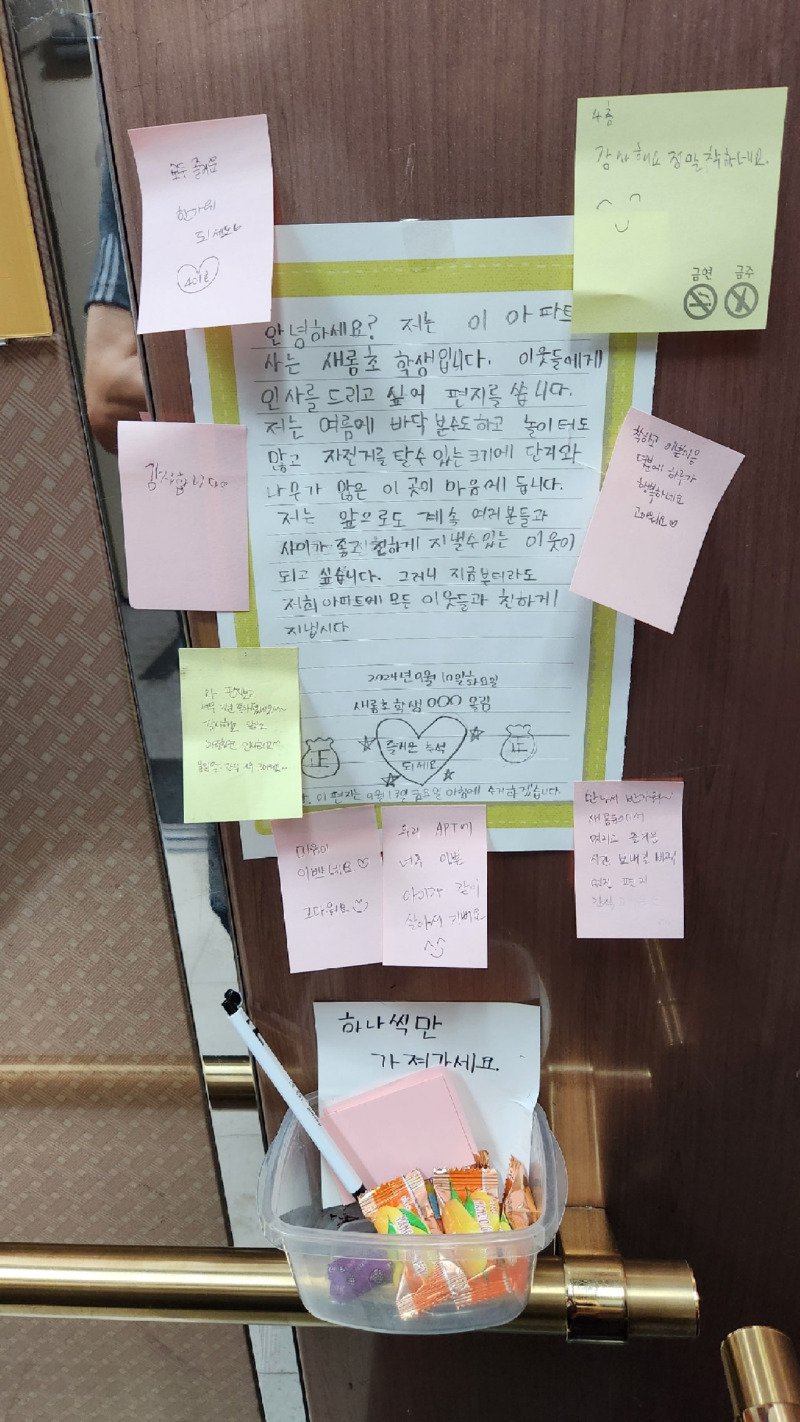 모두 즐거운
한가위
되세요
401호
4층
감사해요 정말 착하네요.
금연 금주
안녕하세요? 저는 이 아파트
사는 새롬초 학생입니다. 이웃들에게
인사를 드리고 싶어 편지를 씁니다.
저는 여름에 바닥 분수도하고 놀이터도
많고 자전거를 탈수 있는크기에 단지와
나무가 많은 이 곳이 마음에 듭니다.
저는 앞으로도 계속 여러분들과
사이가 좋고 친하게 지낼수있는 이웃이
되고 싶습니다. 그러니 지금부터라도
저희아파트에 모든 이웃들과 친하게
지냅시다
2024년 9월 10일 화요일
새롬초 학생 OOO 올림
즐거운 추석
되세요
正
正
이 편지는 9월 13일 금요일 아침에 수거하겠습니다.
감사합니다
착하고 예쁜
덕분에 하루가
행복하네요
고마워요♡
마음이
이쁘네요♡
고마워요
우리 APT에
너무 이쁜
아이가 같이
살아서 기뻐요
만나서 반가워
즐거운
시간 보내길 바래
멋진 편지
하나씩만
가져가세요.